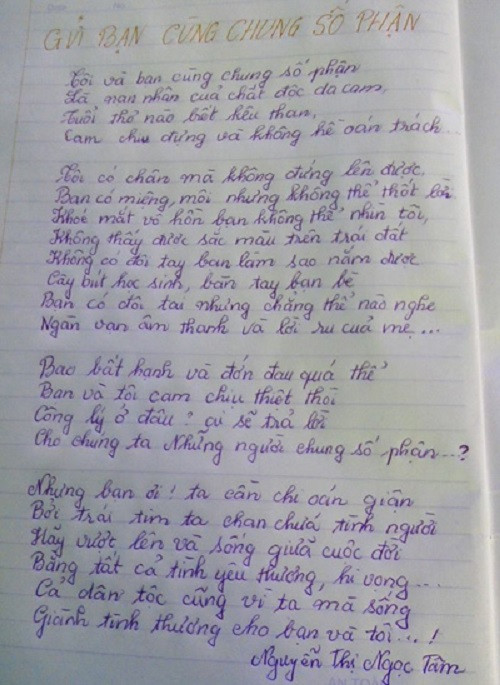 GỬI BẠN CÙNG CHUNG SỐ PHẬN
Tôi và bạn cùng chung số phận
Là nạn nhân của chất độc da cam,
Tuổi thơ nào biết kêu than,
Cam chịu đựng và không hề oán trách...
Tôi có chân mà không đứng lên được,
Bạn có miệng, môi nhưng không thể thốt lời
Khoé mắt vô hồn bạn không thể nhìn tôi,
Không thấy được sắc màu trên trái đất
Không có đôi tay bạn làm sao nắm được
Cây bút học sinh, bàn tay bạn bè
Bạn có đôi tai nhưng chẳng thể nào nghe
Ngàn vạn âm thanh và lời ru của mẹ...
Bao bất hạnh và đớn đau quá thể
Bạn và tôi cam chịu thiệt thòi
Công lý ở đâu? ai sẽ trả lời
Cho chúng ta Những người chung số phận...?
Nhưng bạn ơi! ta cần chi oán giận
Bởi trái tim ta chan chứa tình người
Hãy vượt lên và sống giữa cuộc đời
Bằng tất cả tình yêu thương, hi vọng...
Cả dân tộc cũng vì ta mà sống
Giành tình thương cho bạn và tôi...!
Nguyễn Thị Ngọc Tâm